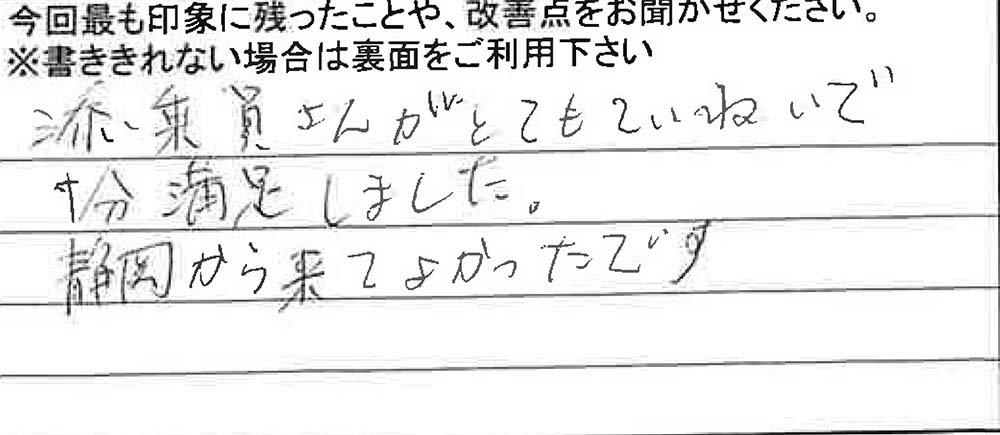 今回最も印象に残ったことや、改善点をお聞かせください。
※書ききれない場合は裏面をご利用下さい
添乗員さんがとてもていねいで
十分満足しました。
静岡から来てよかったです